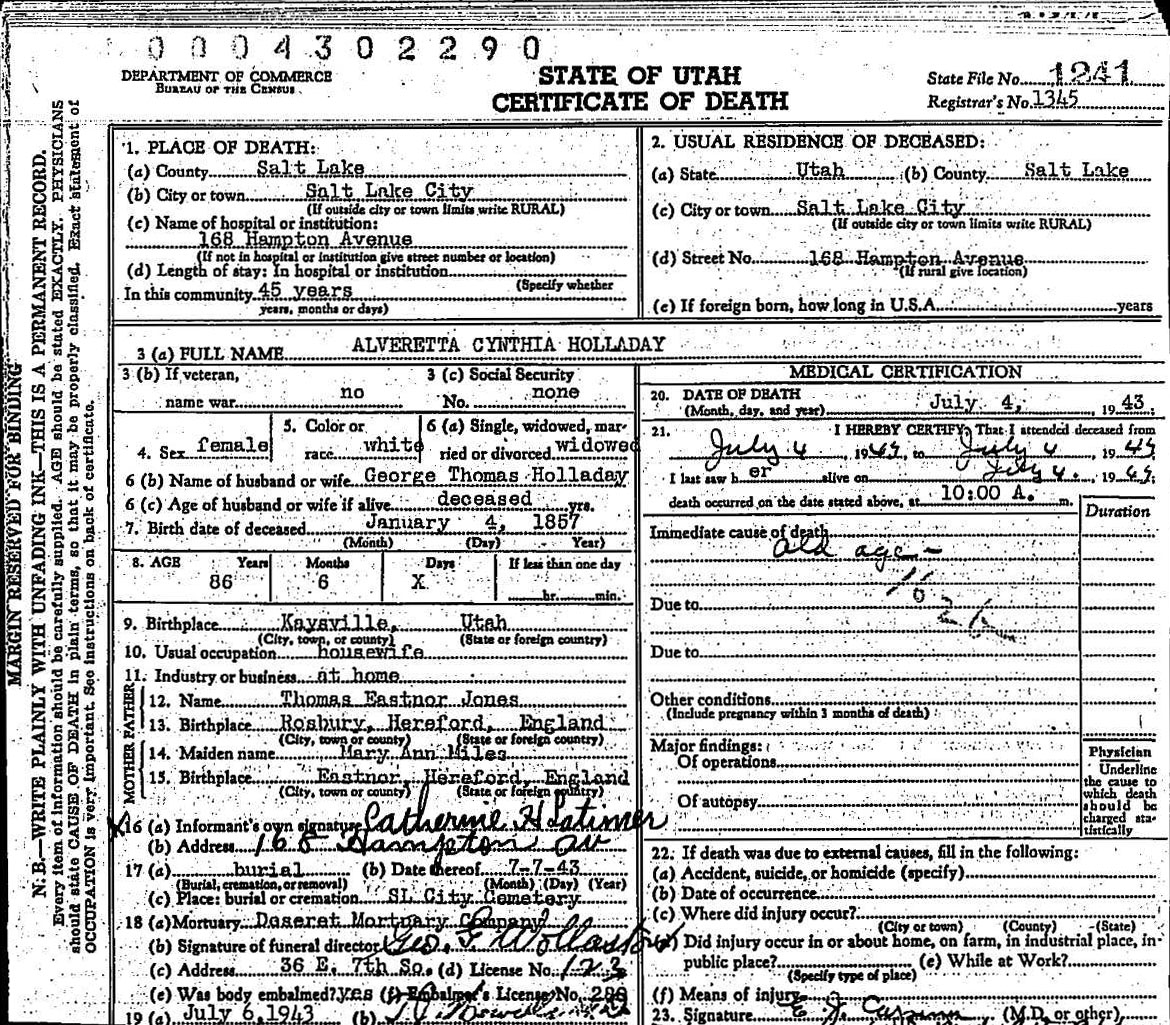 0004302290
DEPARTMENT OF COMMERCE
BUREAU OF THE CENSUS
STATE OF UTAH
CERTIFICATE OF DEATH
State File No. 1241
Registrar's No. 1345
MARGIN RESERVED FOR BINDING
N. B.—WRITE PLAINLY WITH UNFADING INK—THIS IS A PERMANENT RECORD.
Every item of information should be carefully supplied. AGE should be stated EXACTLY. PHYSICIANS
should state CAUSE OF DEATH in plain terms, so that it may be properly classified. Exact statement of
OCCUPATION is very important. See instructions on back of certificate.
1. PLACE OF DEATH:
(a) County Salt Lake
(b) City or town Salt Lake City
(If outside city or town limits write RURAL)
(c) Name of hospital or institution:
168 Hampton Avenue
(If not in hospital or institution give street number or location)
(d) Length of stay: In hospital or institution
(Specify whether
In this community 45 years
years, months or days)
2. USUAL RESIDENCE OF DECEASED:
(a) State Utah (b) County Salt Lake
(c) City or town Salt Lake City
(If outside city or town limits write RURAL)
(d) Street No. 168 Hampton Avenue
(If rural give location)
(e) If foreign born, how long in U.S.A. years
3 (a) FULL NAME ALVERETTA CYNTHIA HOLLADAY
3 (b) If veteran, name war no
3 (c) Social Security No. none
4. Sex female
5. Color or race white
6 (a) Single, widowed, married or divorced widowed
6 (b) Name of husband or wife George Thomas Holladay
6 (c) Age of husband or wife if alive deceased yrs.
7. Birth date of deceased January 4, 1857
(Month) (Day) Year)
8. AGE Years Months Days If less than one day
86 6 X hr. min.
9. Birthplace Kaysville, Utah
(City, town, or county) (State or foreign country)
10. Usual occupation housewife
11. Industry or business at home
FATHER
12. Name Thomas Eastnor Jones
13. Birthplace Rosbury, Hereford, England
(City, town or county) (State or foreign country)
MOTHER
14. Maiden name Mary Ann Miles
15. Birthplace Eastnor, Hereford, England
(City, town or county) (State or foreign country)
16 (a) Informant's own signature Catherine H Latimer
(b) Address 168 Hampton av
17 (a) burial (b) Date thereof 7-7-43
(Burial, cremation, or removal) (Month) (Day) (Year)
(c) Place: burial or cremation SL City Cemetery
18 (a) Mortuary Deseret Mortuary Company
(b) Signature of funeral director Geo. F
(c) Address 36 E. 7th So. (d) License No. 123
(e) Was body embalmed? yes (f) Embalmer's License No.
19 (a) July 6, 1943 (b)
MEDICAL CERTIFICATION
20. DATE OF DEATH
(Month, day, and year) July 4, 1943
21. I HEREBY CERTIFY, That I attended deceased from
July 4, 1943, to July 4 1943
I last saw her alive on July 4. 1943;
death occurred on the date stated above, at 10:00 A. m.
Duration
Immediate cause of death
old age -
Due to
Due to
Other conditions
(Include pregnancy within 3 months of death)
Major findings:
Of operations
Of autopsy
Physician
Underline
the cause to
which death
should be
charged sta-
tistically
22. If death was due to external causes, fill in the following:
(a) Accident, suicide, or homicide (specify)
(b) Date of occurrence
(c) Where did injury occur?
(City or town) (County) (State)
(d) Did injury occur in or about home, on farm, in industrial place, in
public place? (e) While at Work?
(Specify type of place)
(f) Means of injury
23. Signature (M.D. or other)